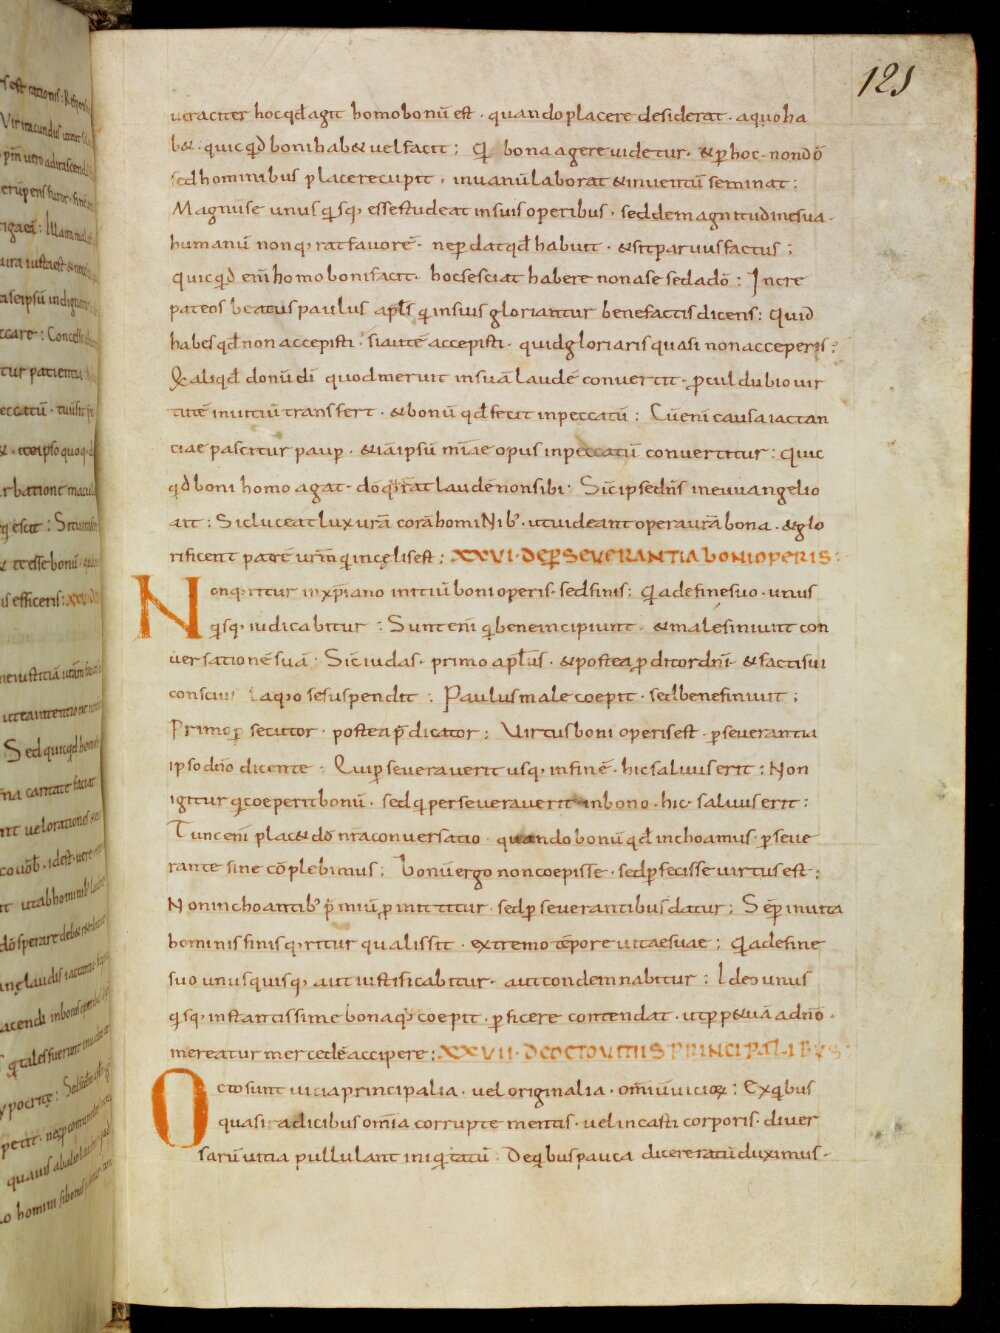 121
ueraciter hoc qđ agit homo bonū est · quando placere desiderat · a quo ha
b& · quicqđ boni hab& uel facit ; Q̄ bona agere uidetur · & ꝑ hoc · non dō
sed hominibus placere cupit · in uanū laborat & in uentū seminat :
Magnus e unusq̄sq; esse studeat in suis operibus · sed de magnitudine sua ·
humanū non q̨rat fauorē · ne ꝑdat qđ habuit · & sit paruus factus ;
quicqđ eni homo boni facit · hoc se sciat habere non a se sed a dō : Incre
pat eos beatus paulus apłs q̄ in suis gloriantur benefactis dicens : Quid
habes qđ non accepisti · si autē accepisti · quid gloriaris quasi non acceperis ;
Q̄ aliqđ donū dī quod meruit in suā laudē conuertit · ꝓcul dubio uir
tutē in uitiū transfert · & bonū qđ fecit in peccatū : Cū eni causa iactan
tiae pascitur pauꝑ · & iā ipsū mīae opus in peccatū conuertitur : Quic
qđ boni homo agat · dō q̨rat laudē non sibi · Sic̄ ipse dn̄s in euuangelio
ait : Sic luceat lux urā corā hominib; · ut uideant opera urā bona · & glo
rificent patrē urm̄ q̄ in cęlis est ; XXVI · DE ꝐSEVERANTIA BONI OPERIS :
Non q̨ritur in xp̄iano initiū boni operis · sed finis : Q̄a de fine suo · unus
q̄sq; iudicabitur : Sunt eni q̄ bene incipiunt · & male finiunt con
uersationē suā : Sic̄ iudas · primo apłus · & postea ꝓditor dn̄i · & facti sui
conscius laq̨o se suspendit : Paulus male coepit · sed bene finiuit ;
Primo ꝑsecutor · postea p̄dicator ; Uirtus boni operis est · ꝑseuerantia
ipso dn̄o dicente : Qui ꝑseuerauerit usq; in finē · hic saluus erit : Non
igitur q̄ coeperit bonū · sed q̄ perseuerauerit in bono · hic saluus erit :
Tunc eni plac& dō nr̄a conuersatio · quando bonū qđ inchoamus · ꝑseue
rante fine cōplebimus ; Bonū ergo non coepisse · sed ꝑfecisse uirtus est ;
Non inchoantib; p̄miū ꝓmittitur · sed ꝑseuerantibus datur ; Sēꝑ in uita
hominis finis q̨ritur qualis sit · extremo tēpore uitae suae ; Q̄a de fine
suo unusquisq; aut iustificabitur · aut condemnabitur : Ideo unus
q̄sq; instantissime bona q̨ coepit · ꝑficere contendat · ut ꝑp&uā a dn̄o ·
mereatur mercedē accipere : XXVII · DE OCTO VITIIS PRINCIPALIBUS
Octo sunt uicia principalia · uel originalia · omīū uicioꝝ : Ex q̄bus
quasi radicibus omīa corrupte mentis · uel incasti corporis · diuer
sarū uitia pullulant iniq̄tatū : De q̄bus pauca dicere ratū duximus ·